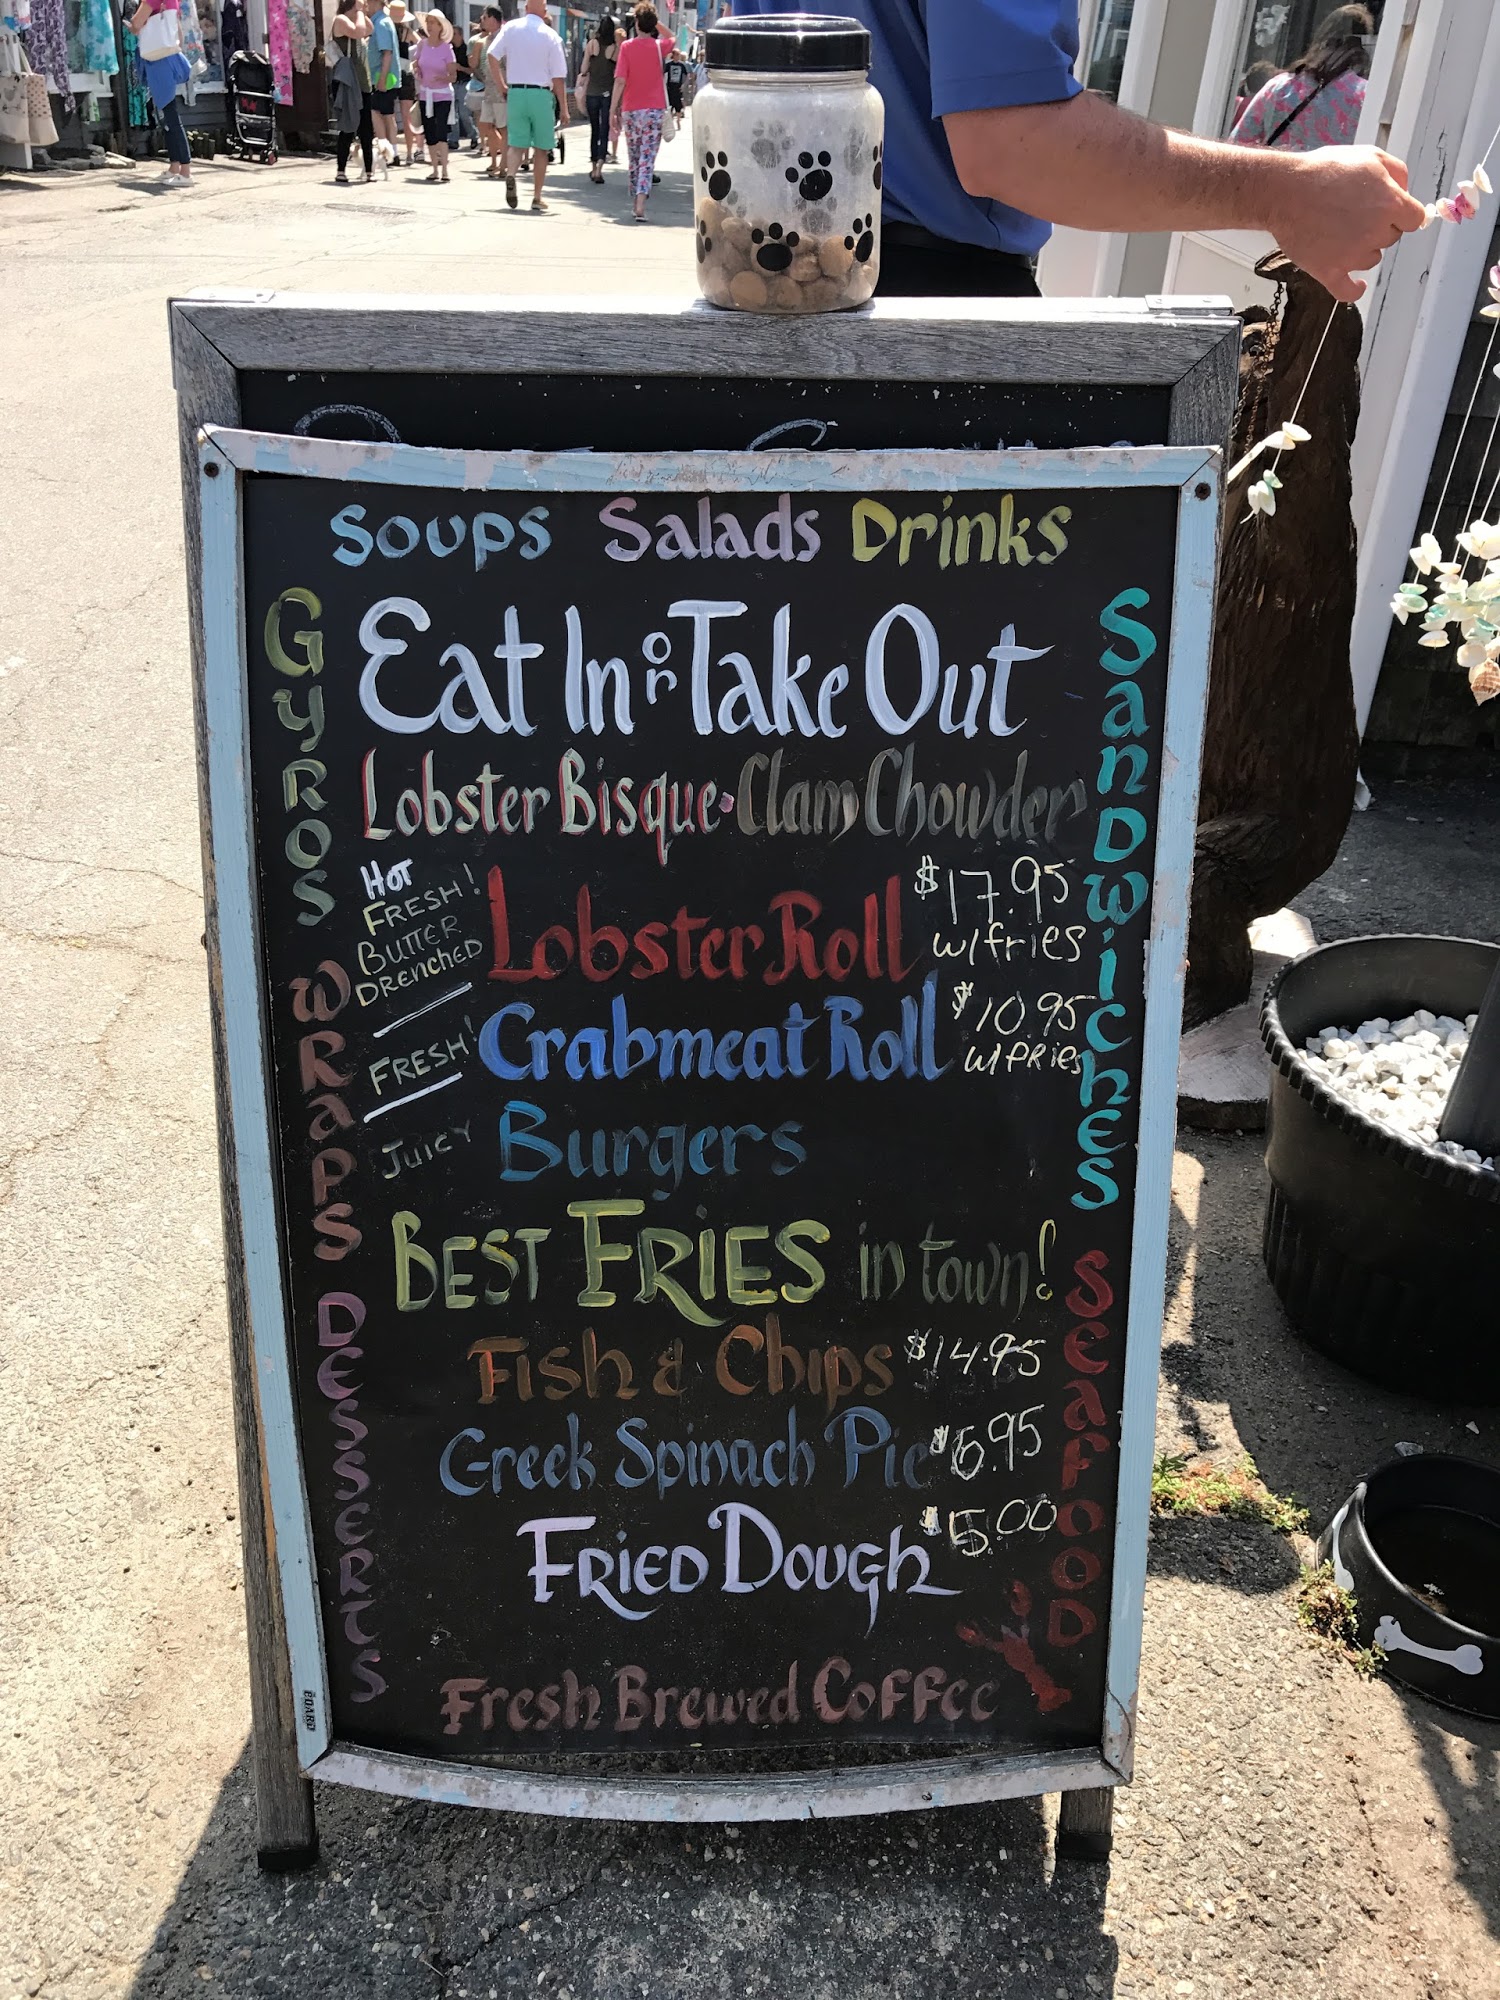 Soups Salads Drinks
Gyros
Wraps
Desserts
Eat In or Take Out
Lobster Bisque • Clam Chowder
Hot
FRESH!
BUTTER
DRENCHED
Lobster Roll $17.95
w/fries
FRESH!
Crabmeat Roll $10.95
w/FRIES
JUICY Burgers
BEST FRIES in town!
Fish & Chips $14.95
Greek Spinach Pie $6.95
Fried Dough $5.00
Fresh Brewed Coffee
Sandwiches
Seafood